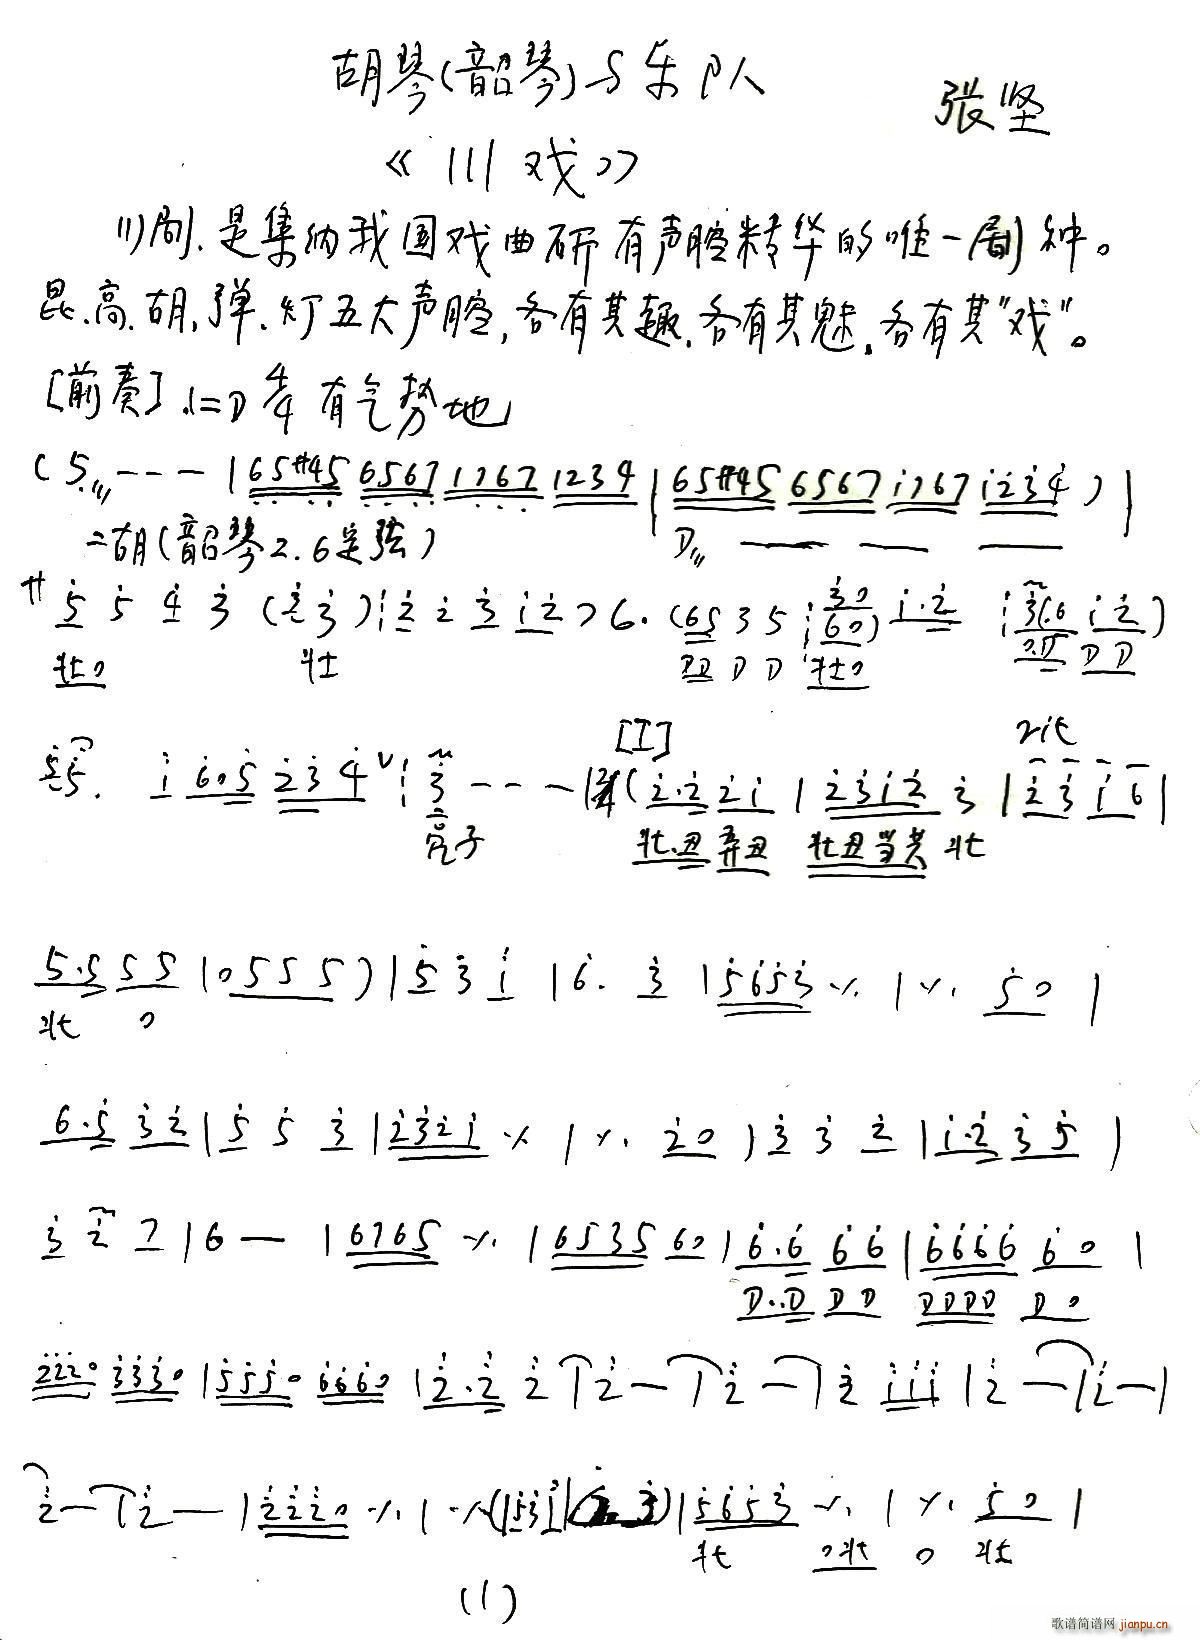 胡琴(韶琴)与乐队
张坚
《川戏》
川剧.是集纳我国戏曲所有声腔精华的唯一剧种。
昆.高.胡.弹.灯五大声腔,各有其趣.各有其魅.各有其"戏"。
[前奏].1=D 4/4 有气势地
( 5. - - - | 6 5 #4 5 6 5 6 7 1 7 6 7 1 2 3 4 | 6 5 #4 5 6 5 6 7 i 7 6 7 i 2 3 4 ) |
二胡(韶琴2.6定弦) D
サ 5 5 4 3 ( 2 3 ) ¦ 2 2 3 i 2 7 6. ( 6 5 3 5 ¦ 3 0 6 0 ) i. 2
壮0 壮 D D D D 壮0 D D
i 6 0 5 2 3 4 ˅ ¦ 3 - - - | 2/4 ( 2. 2 2 i | 2 3 i 2 3 | 2 3 i 6 |
[I] rit
亮子 壮.丑 弄丑 壮丑当共 壮
5. 5 5 5 | 0 5 5 5 ) | 5 3 i | 6. 3 | 5 6 5 3 ٪ | ٪ 5 0 |
壮 0
6. 5 3 2 | 5 5 3 | 2 3 2 i ٪ | ٪ 2 0 | 3 3 2 | i. 2 3 5 |
3 2 7 | 6 — | 6 7 6 5 ٪ | 6 5 3 5 6 0 | 6. 6 6 6 | 6 6 6 6 6 0 |
D..D D D D D D D D 0
2 2 2 0 3 3 3 0 | 5 5 5 0 6 6 6 0 | 2. 2 2 | 2 — | 2 — | 2 i i i | 2 — | 2 — |
2 — | 2 — | 2 2 2 0 ٪ | ٪ ( | 5 3 i | ) | 5 6 5 3 ٪ | ٪ 5 0 |
壮 0壮 0 壮
(1)
歌谱简谱网 jianpu.cn